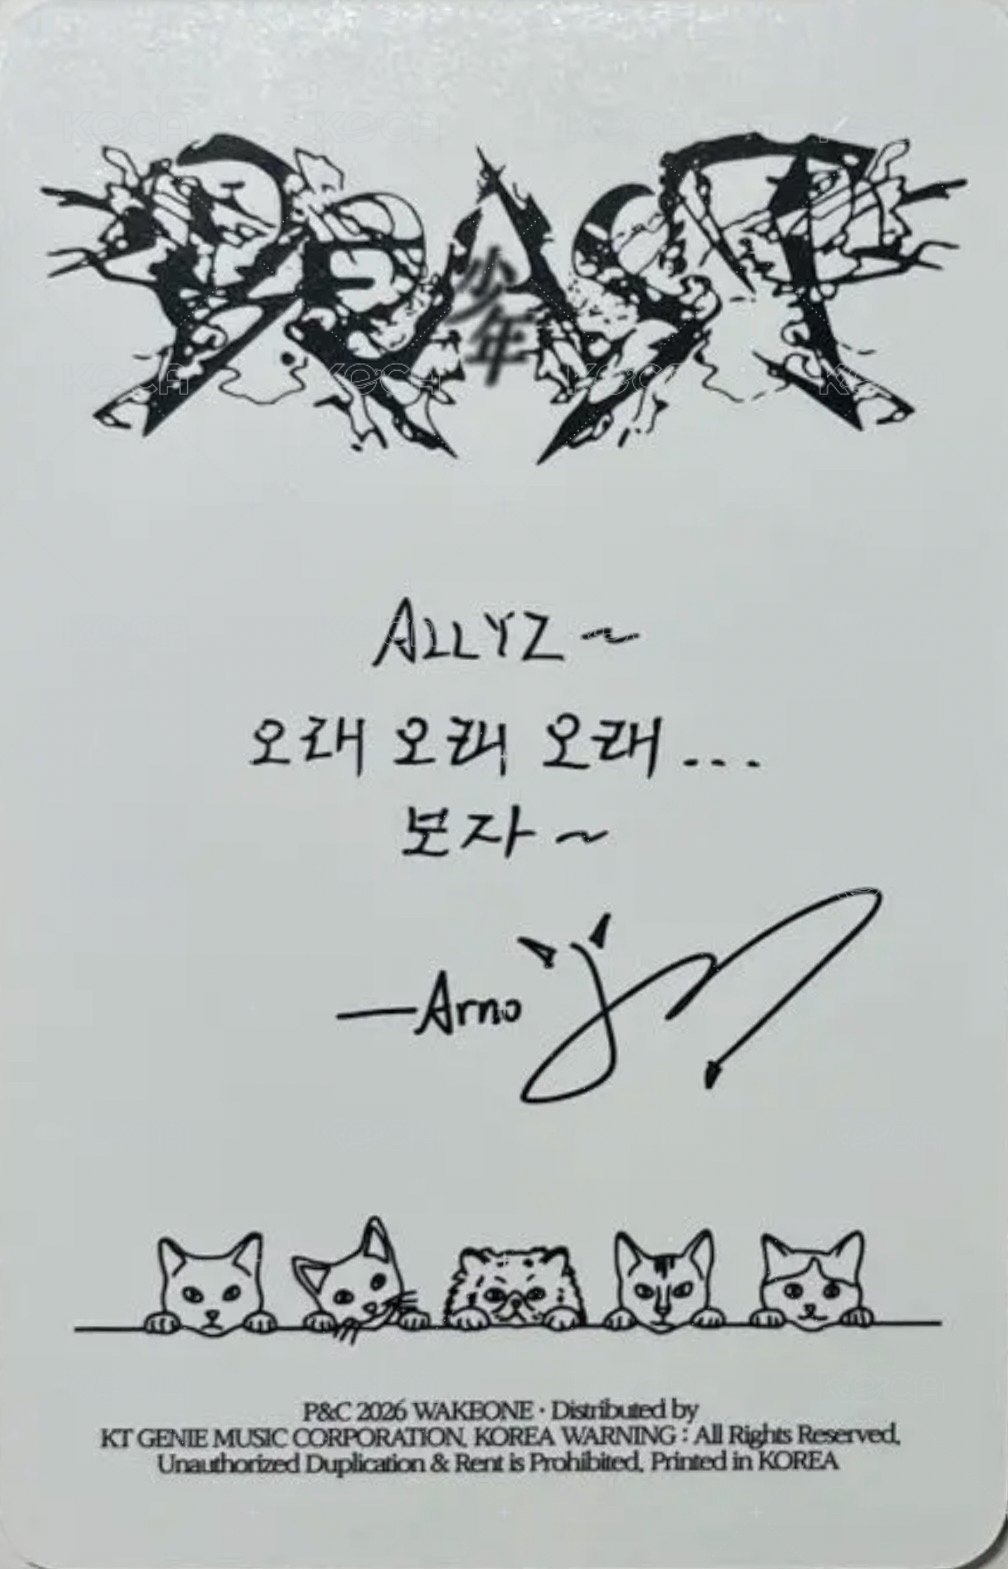 BEAST
少年
ALLYZ~
오래 오래 오래...
보자~
—Arno
P&C 2026 WAKEONE · Distributed by
KT GENIE MUSIC CORPORATION, KOREA WARNING : All Rights Reserved,
Unauthorized Duplication & Rent is Prohibited, Printed in KOREA